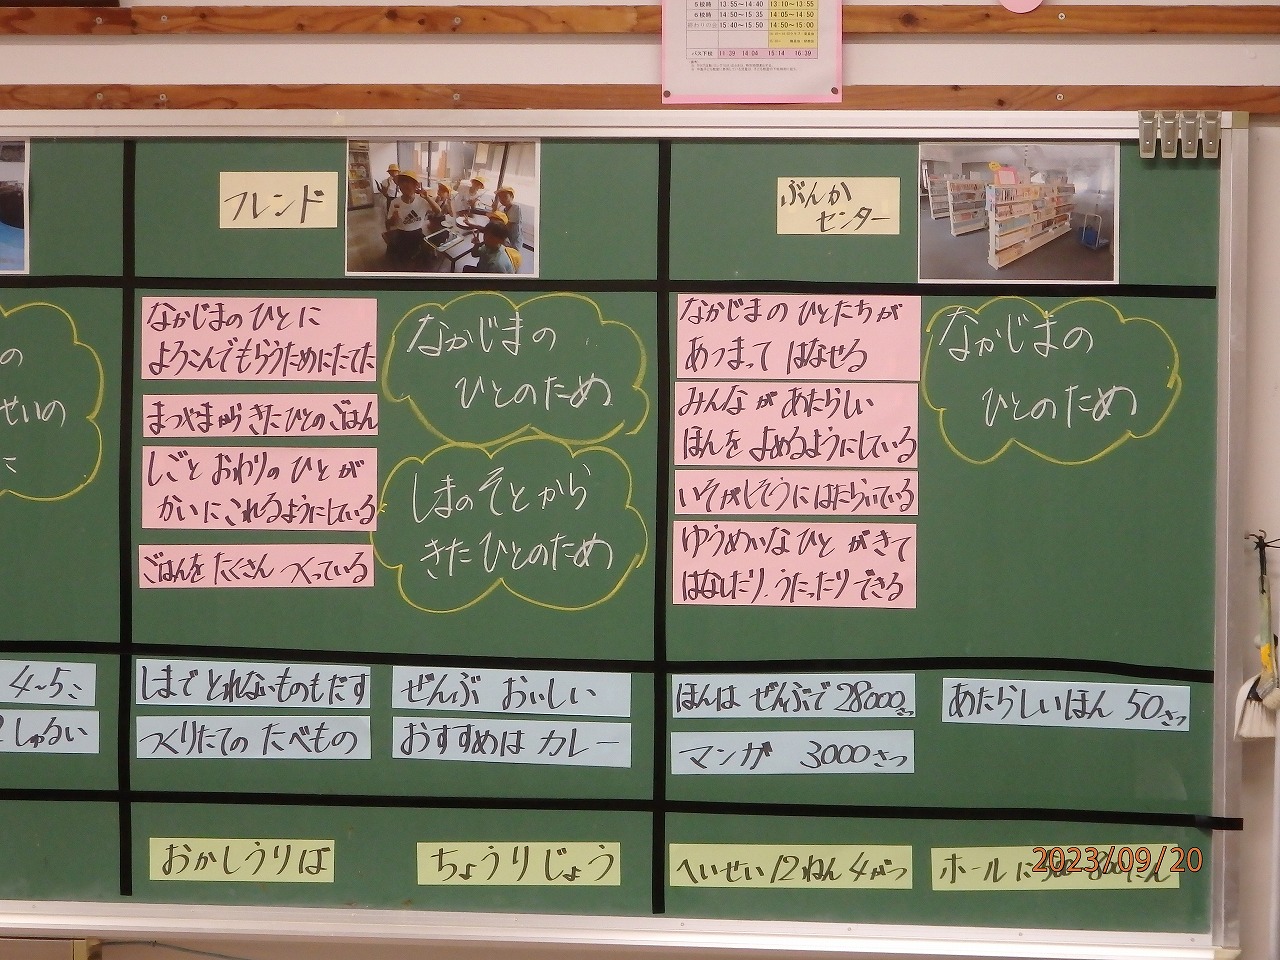 5校時 13:55～14:40 13:10～13:55
6校時 14:50～15:35 14:05～14:50
終わりの会 15:40～15:50 14:50～15:00
バス下校 11:39 14:04 15:14 16:39
フレンド
なかじまの ひとに
よろこんでもらうためにたてた
まつやまから きた ひとの ごはん
しごと おわりの ひとが
かいに これるようにしている
ごはんを たくさん つくっている
なかじまの
ひとのため
しまの そとから
きた ひとのため
しまで とれないものもだす
つくりたての たべもの
ぜんぶ おいしい
おすすめは カレー
おかしうりば
ちょうりじょう
ぶんか
センター
なかじまの ひとたちが
あつまって はなせる
みんなが あたらしい
ほんを よめるようにしている
いそがしそうに はたらいている
ゆうめいな ひとが きて
はなしたり、うたったりできる
なかじまの
ひとのため
ほんは ぜんぶで 28000さつ
マンガ 3000さつ
あたらしいほん 50さつ
へいせい12ねん 4がつ
ホールに
の
せいの
に
4～5こ
しゅるい
2023/09/20